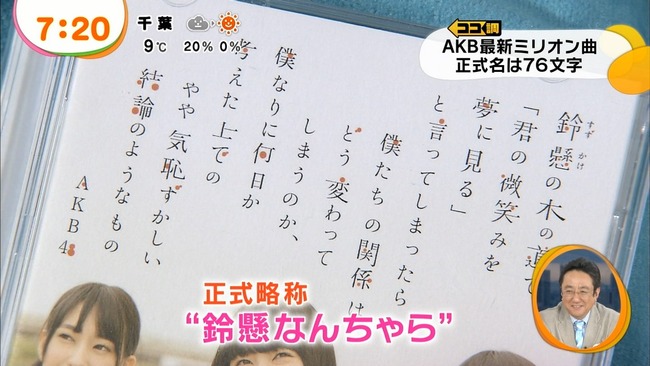 7:20
千葉
9℃ 20% 0%
ココ調
AKB最新ミリオン曲
正式名は76文字
すず かけ
鈴懸の木の道で
「君の微笑みを
夢に見る」
と言ってしまったら
僕たちの関係は
どう変わって
しまうのか、
僕なりに何日か
考えた上での
やや気恥ずかしい
結論のようなもの
AKB48
正式略称
“鈴懸なんちゃら”